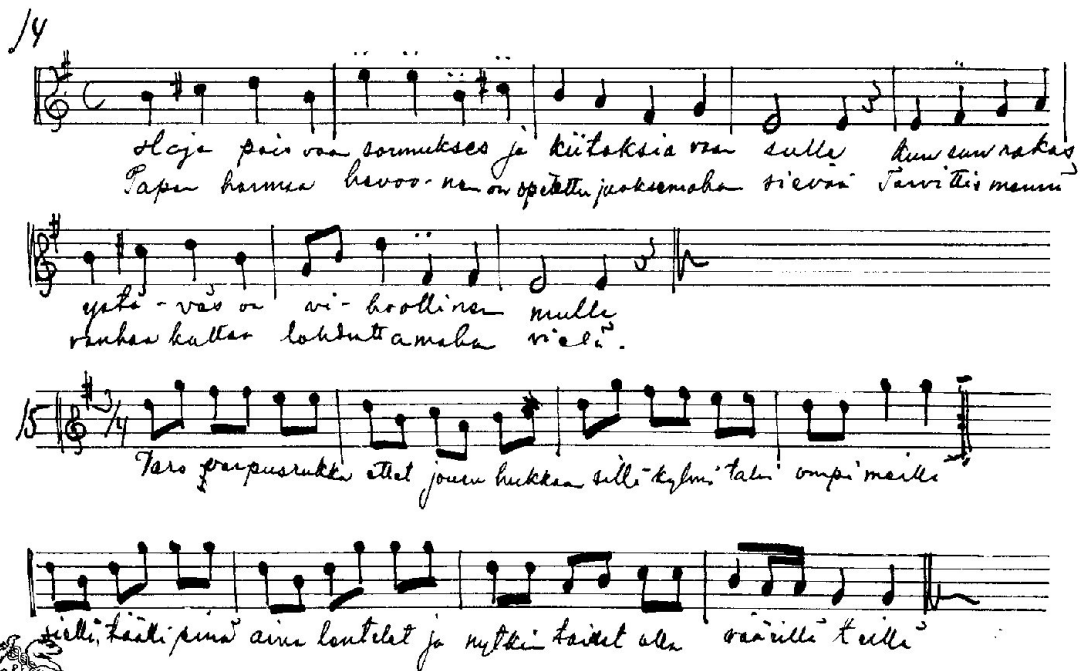 14
pois vaan sormukses ja kiitoksia vaan sulla kun sun rakas
Tapan harmaa hevoo-nen on opetettu juoksemahan sievää Tarvittis mennä
ystä-väs on vi-hoollinen mulla
vanhaa kultaa lohduttamahan vielä.
15 3/4
varpusrukka ettet joudu hukkaan sillä kylmä talvi ompi meillä
siellä, täällä sinä aina lentelet ja nytkin taidat olla väärillä teillä